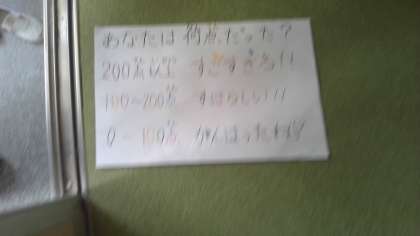 あなたは何点だった？
200点以上 すごすぎる!!
100～200点 すばらしい!!
0～100点 がんばったね!?